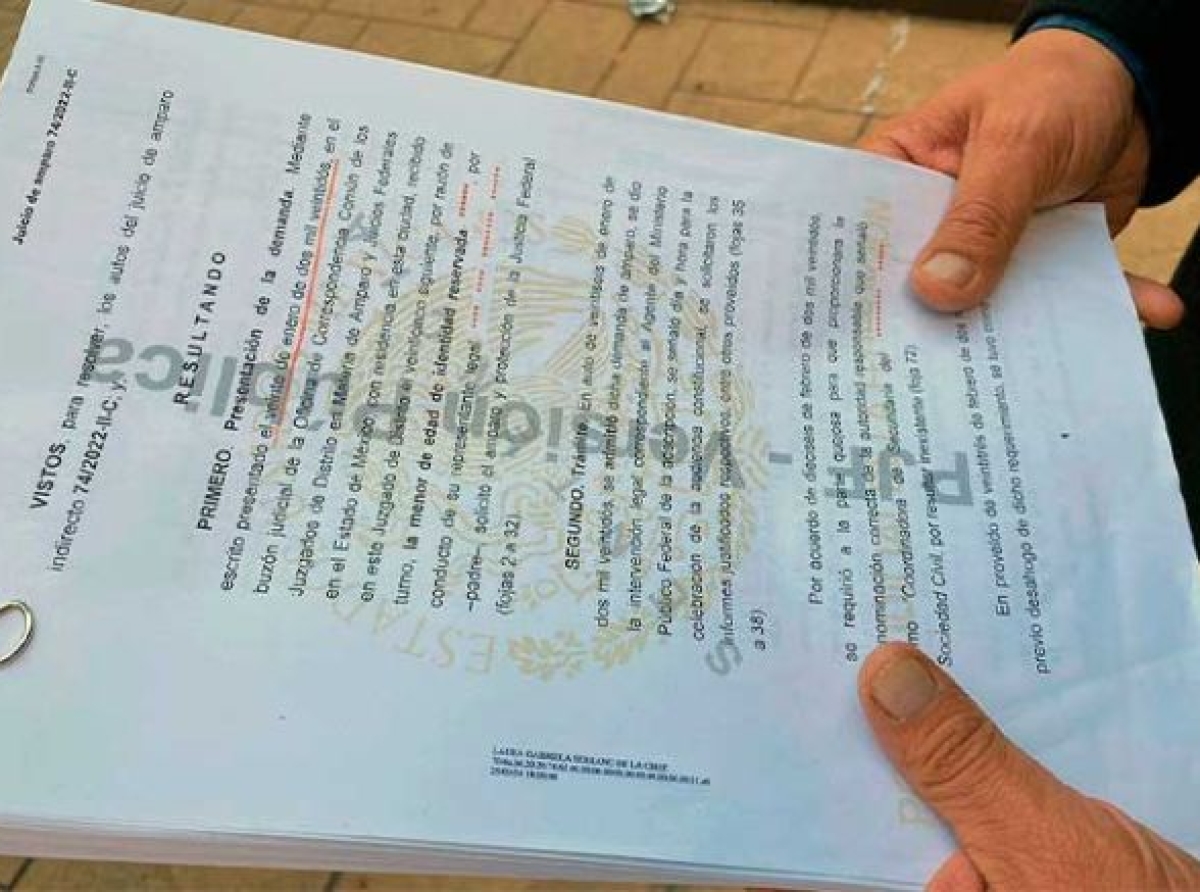 Juicio de amparo 74/2022-II-C
VISTOS, para resolver, los autos del juicio de amparo
indirecto 74/2022-II-C, y
R E S U L T A N D O
PRIMERO. Presentación de la demanda. Mediante
escrito presentado el veinte de enero de dos mil veintidós, en el
buzón judicial de la Oficina de Correspondencia Común de los
Juzgados de Distrito en Materia de Amparo y Juicios Federales
en el Estado de México, con residencia en esta ciudad, recibido
en este Juzgado de Distrito el veintiuno siguiente, por razón de
turno, la menor de edad de identidad reservada ****** , por
conducto de su representante legal
–padre– solicitó el amparo y protección de la Justicia Federal
(fojas 2 a 32).
SEGUNDO. Trámite. En auto de veintidós de enero de
dos mil veintidós, se admitió dicha demanda de amparo, se dio
la intervención legal correspondiente al Agente del Ministerio
Público Federal de la adscripción, se señaló día y hora para la
celebración de la audiencia constitucional, se solicitaron los
informes justificados respectivos, entre otros proveídos (fojas 35
a 38)
Por acuerdo de dieciséis de febrero de dos mil veintidós,
se requirió a la parte quejosa para que proporcionara la
nominación correcta de la autoridad responsable que señaló
mo "Coordinadora de Secundaria del
Sociedad Civil por resultar inexistente (foja 77).
En proveído de veintitrés de febrero de dos
previo desahogo de dicho requerimiento, se tuvo
PJF - Versión Pública
ESTAD
LAURA GABRIELA SERRANO DE LA CRUZ